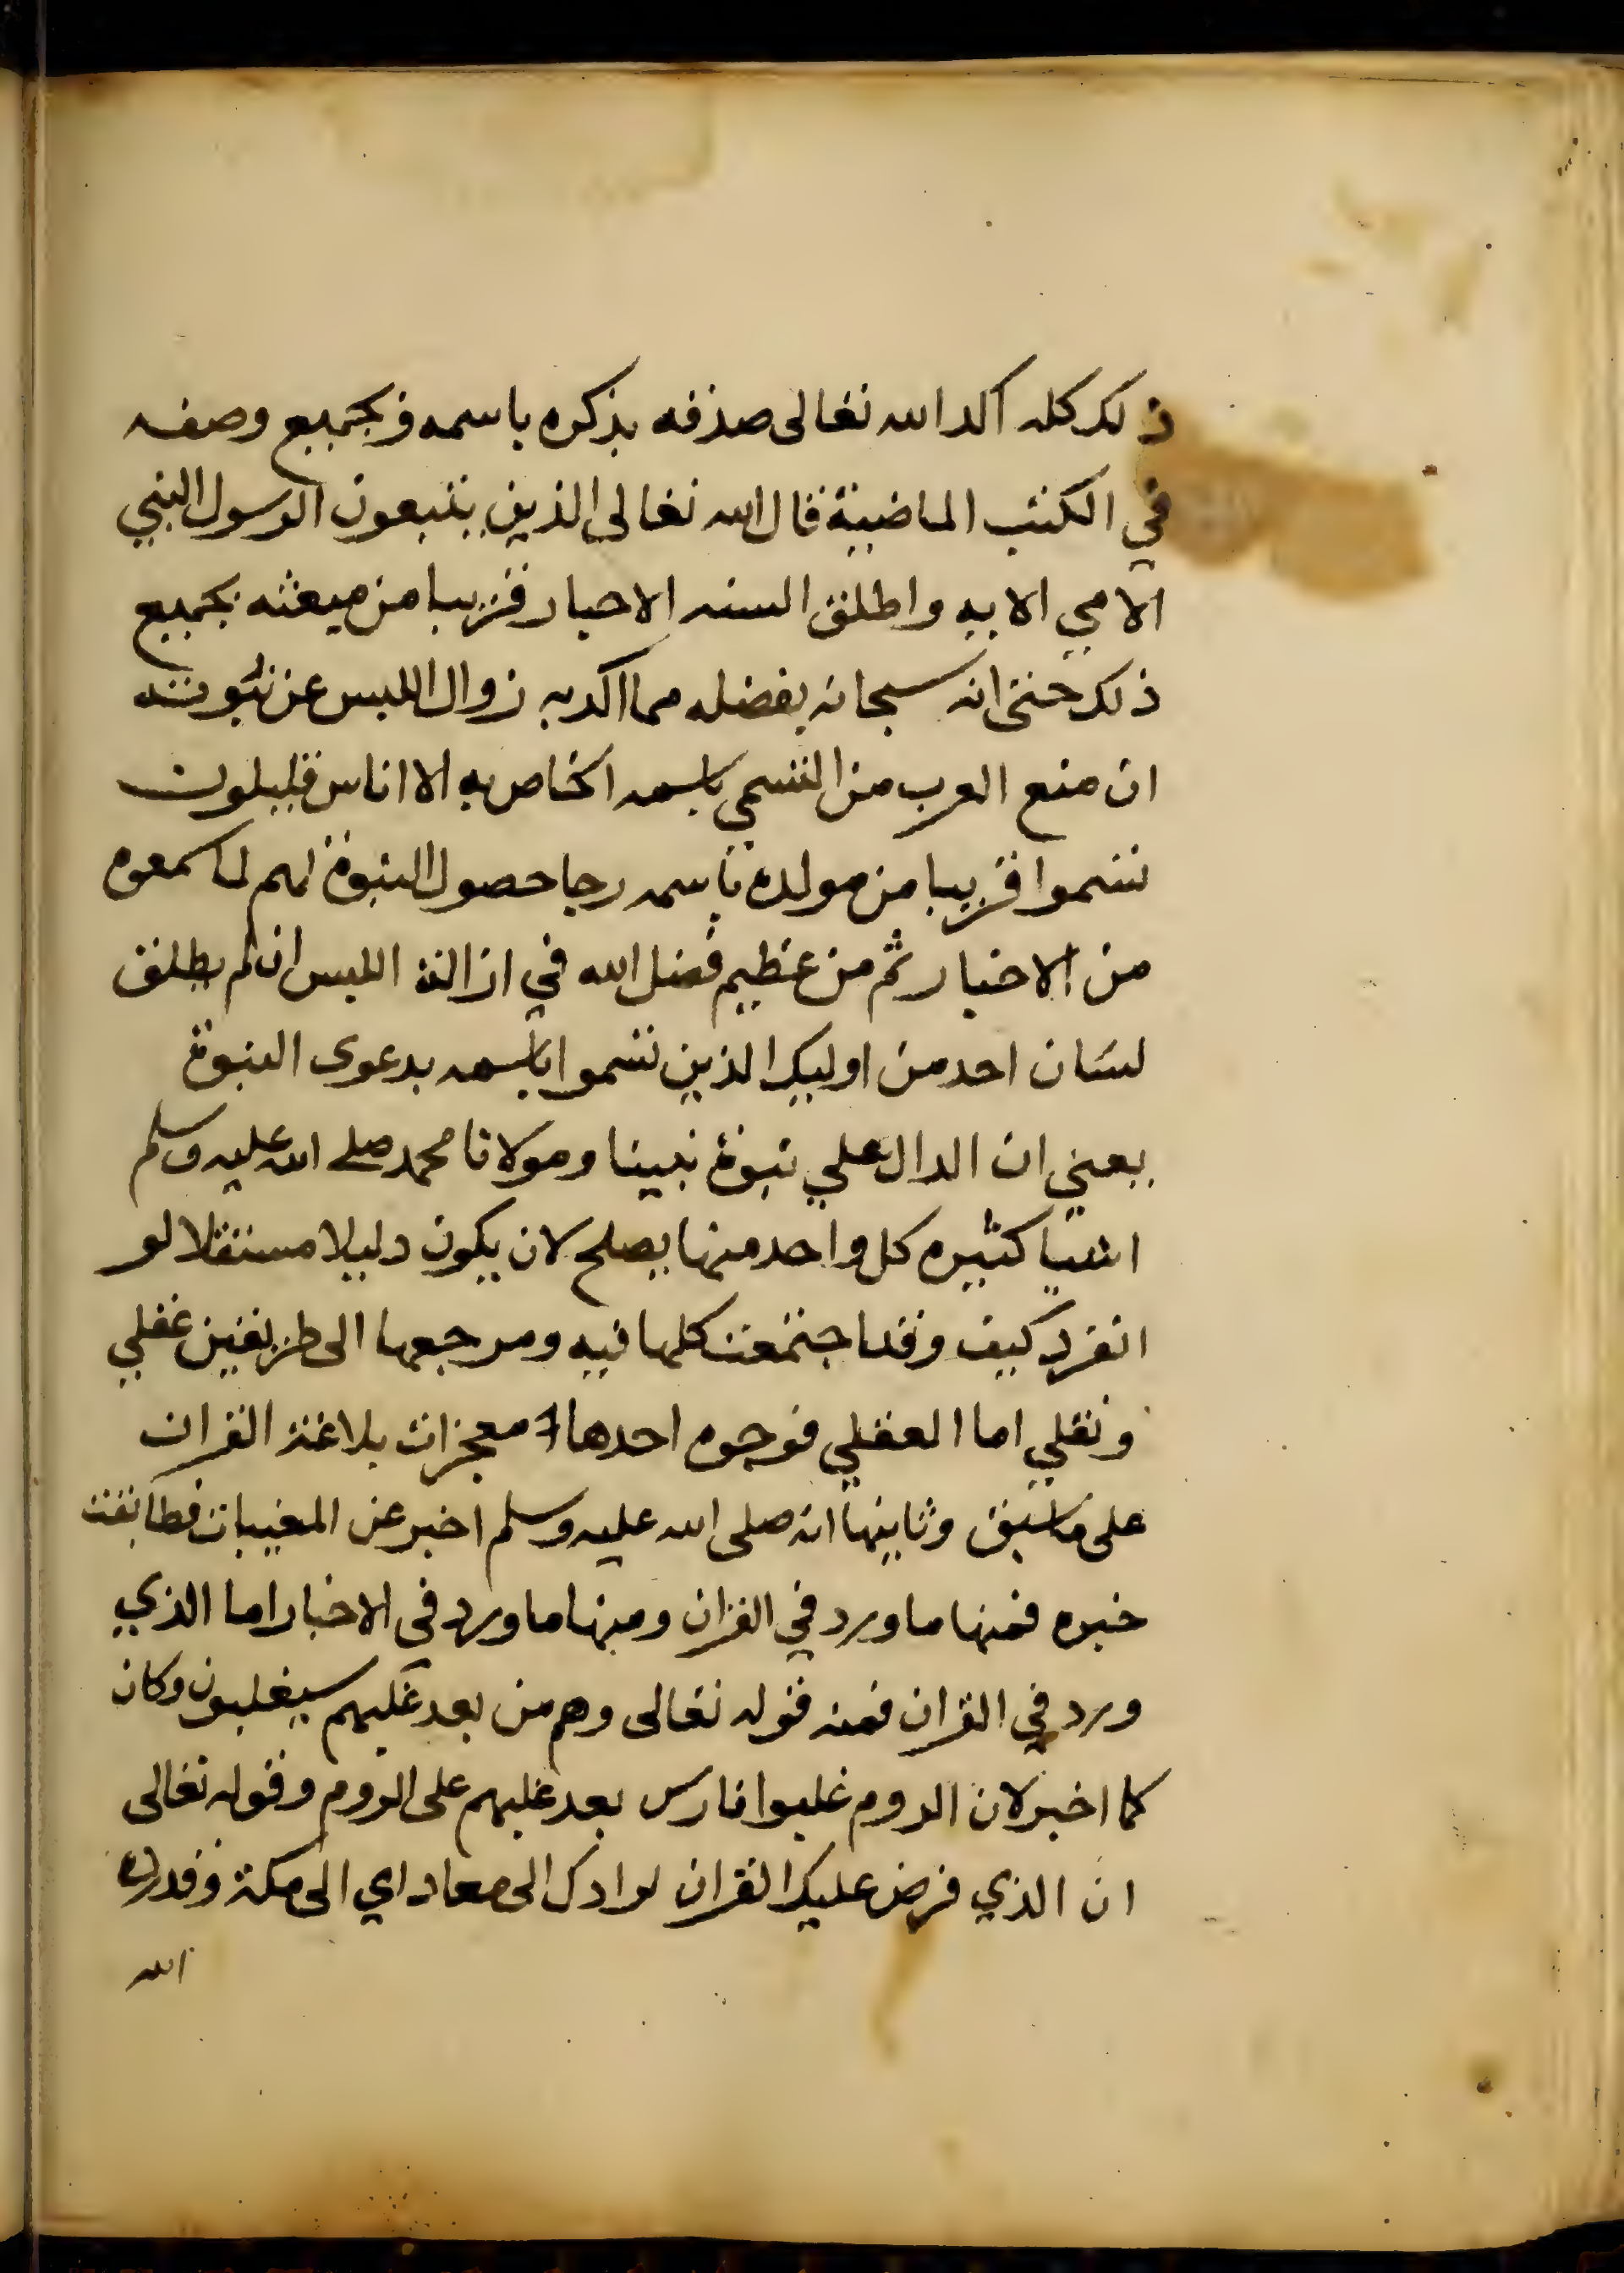 ذلك كله اكد الله تعالى صدقه بذكره باسمه وبجميع وصفه
في الكتب الماضية قال الله تعالى الذين يتبعون الرسول النبي
الامي الايه واطلق السنه الاحبار قريبا من مبعثه بجميع
ذلك حتى انه سبحانه بفضله مما اكد به زوال اللبس عن نبوته
ان منع العرب من التسمي باسمه الخاص به الا اناس قليلون
تسموا قريبا من مولده باسمه رجا حصول النبوة لهم لما سمعوه
من الاخبار ثم من عظيم فضل الله في ازالة اللبس ان لم يطلق
لسان احد من اوليك الذين تسموا باسمه بدعوى النبوة
يعني ان الدال علي نبوة نبينا ومولانا محمد صلى الله عليه وسلم
اشيا كثيره كل واحد منها يصلح لان يكون دليلا مستقلا لو
انفرد كيف وقد اجتمعت كلها فيه ومرجعها الى طريقين عقلي
ونقلي اما العقلي فوجوه احدها معجزات بلاغة القران
على ما سبق وثانيها انه صلى الله عليه وسلم اخبر عن المغيبات فطابقت
خبره فمنها ما ورد في القران ومنها ما ورد في الاخبار اما الذي
ورد في القران فمنه قوله تعالى وهم من بعد غلبهم سيغلبون وكان
كما اخبر لان الروم غلبوا فارس بعد غلبهم على الروم وقوله تعالى
ان الذي فرض عليك القران لرادك الى معاد اي الى مكة وقد رده
الله